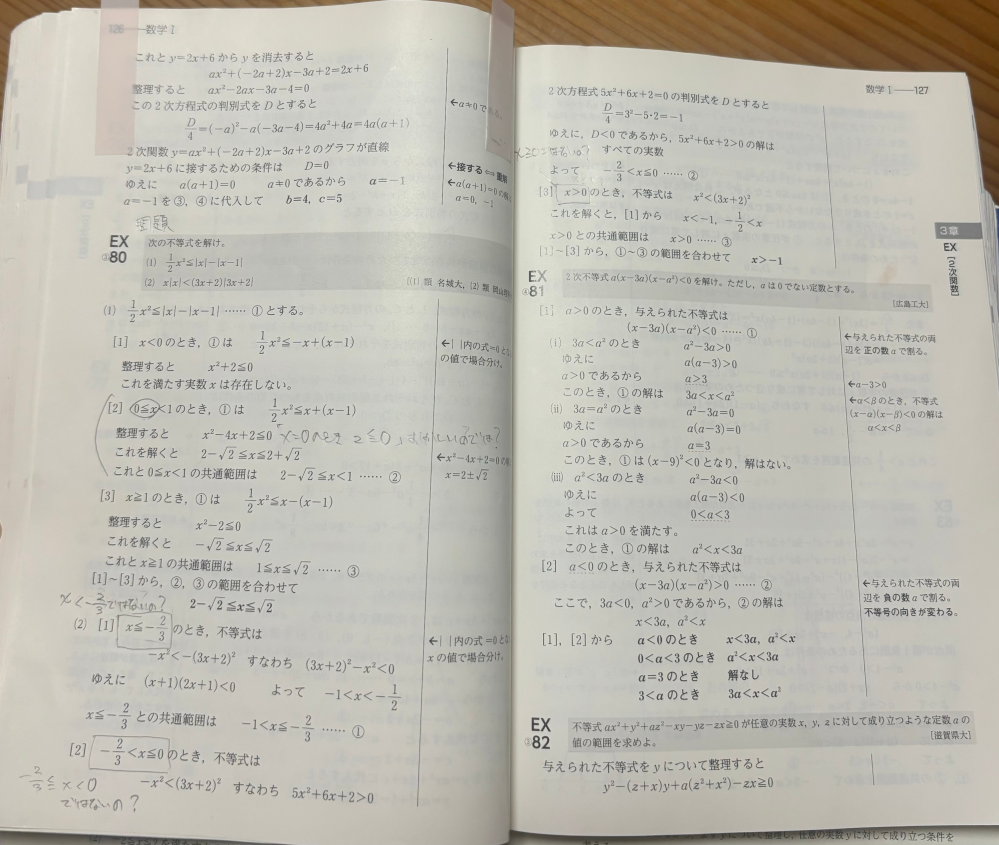 126 ― 数学Ⅰ
これと y=2x+6 から y を消去すると
ax²+(−2a+2)x−3a+2=2x+6
整理すると ax²−2ax−3a−4=0
この2次方程式の判別式を D とすると
←a≠0で
D/4=(−a)²−a(−3a−4)=4a²+4a=4a(a+1)
2次関数 y=ax²+(−2a+2)x−3a+2 のグラフが直線
y=2x+6 に接するための条件は D=0
←接する⟺
ゆえに a(a+1)=0 a≠0 であるから a=−1
←a(a+1)=0の
a=0, −1
a=−1 を③, ④に代入して b=4, c=5
問題
EX
②80
次の不等式を解け。
(1) 1/2x²≦|x|−|x−1|
(2) x|x|<(3x+2)|3x+2|
[(1) 類 名城大, (2) 類 岡山
(1) 1/2x²≦|x|−|x−1| …… ① とする。
[1] x<0 のとき, ①は 1/2x²≦−x+(x−1)
←| |内の式=0と
の値で場合分け。
整理すると x²+2≦0
これを満たす実数 x は存在しない。
[2] 0≦x<1 のとき, ①は 1/2x²≦x+(x−1)
整理すると x²−4x+2≦0
x=0のとき 2≦0
これを解くと 2−√2≦x≦2+√2
←x²−4x+2=0の
x=2±√2
これと 0≦x<1 の共通範囲は 2−√2≦x<1 …… ②
[3] x≧1 のとき, ①は 1/2x²≦x−(x−1)
整理すると x²−2≦0
これを解くと −√2≦x≦√2
これと x≧1 の共通範囲は 1≦x≦√2 …… ③
[1]~[3] から, ②, ③の範囲を合わせて
2−√2≦x≦√2
x<−2/3ではないの?
(2) [1] x≦−2/3 のとき, 不等式は
←| |内の式=0と
xの値で場合分け。
−x²<−(3x+2)² すなわち (3x+2)²−x²<0
ゆえに (x+1)(2x+1)<0 よって −1<x<−1/2
x≦−2/3 との共通範囲は −1<x≦−2/3 …… ①
[2] −2/3<x≦0 のとき, 不等式は
−x²<(3x+2)² すなわち 5x²+6x+2>0
−2/3≦x<0
ではないの?
数学Ⅰ ― 127
2次方程式 5x²+6x+2=0 の判別式を D とすると
D/4=3²−5・2=−1
ゆえに, D<0 であるから, 5x²+6x+2>0 の解は
すべての実数
よって −2/3<x≦0 …… ②
[3] x>0 のとき, 不等式は x²<(3x+2)²
これを解くと, [1] から x<−1, −1/2<x
x>0 との共通範囲は x>0 …… ③
[1]~[3] から, ①~③の範囲を合わせて x>−1
3章
EX
[2次関数]
EX
③81
2次不等式 a(x−3a)(x−a²)<0 を解け。ただし, a は0でない定数とする。
[広島工大]
[1] a>0 のとき, 与えられた不等式は
(x−3a)(x−a²)<0 …… ①
←与えられた不等式の両
辺を正の数 a で割る。
(i) 3a<a² のとき a²−3a>0
ゆえに a(a−3)>0
a>0 であるから a>3
←a−3>0
このとき, ①の解は 3a<x<a²
←α<βのとき, 不等式
(x−α)(x−β)<0 の解は
α<x<β
(ii) 3a=a² のとき a²−3a=0
ゆえに a(a−3)=0
a>0 であるから a=3
このとき, ①は (x−9)²<0 となり, 解はない。
(iii) a²<3a のとき a²−3a<0
ゆえに a(a−3)<0
よって 0<a<3
これは a>0 を満たす。
このとき, ①の解は a²<x<3a
[2] a<0 のとき, 与えられた不等式は
(x−3a)(x−a²)>0 …… ②
←与えられた不等式の両
辺を負の数 a で割る。
不等号の向きが変わる。
ここで, 3a<0, a²>0 であるから, ②の解は
x<3a, a²<x
[1], [2] から a<0 のとき x<3a, a²<x
0<a<3 のとき a²<x<3a
a=3 のとき 解なし
3<a のとき 3a<x<a²
EX
②82
不等式 ax²+y²+az²−xy−yz−zx≧0 が任意の実数 x, y, z に対して成り立つような定数 a の
値の範囲を求めよ。
[滋賀県大]
与えられた不等式を y について整理すると
y²−(z+x)y+a(z²+x²)−zx≧0